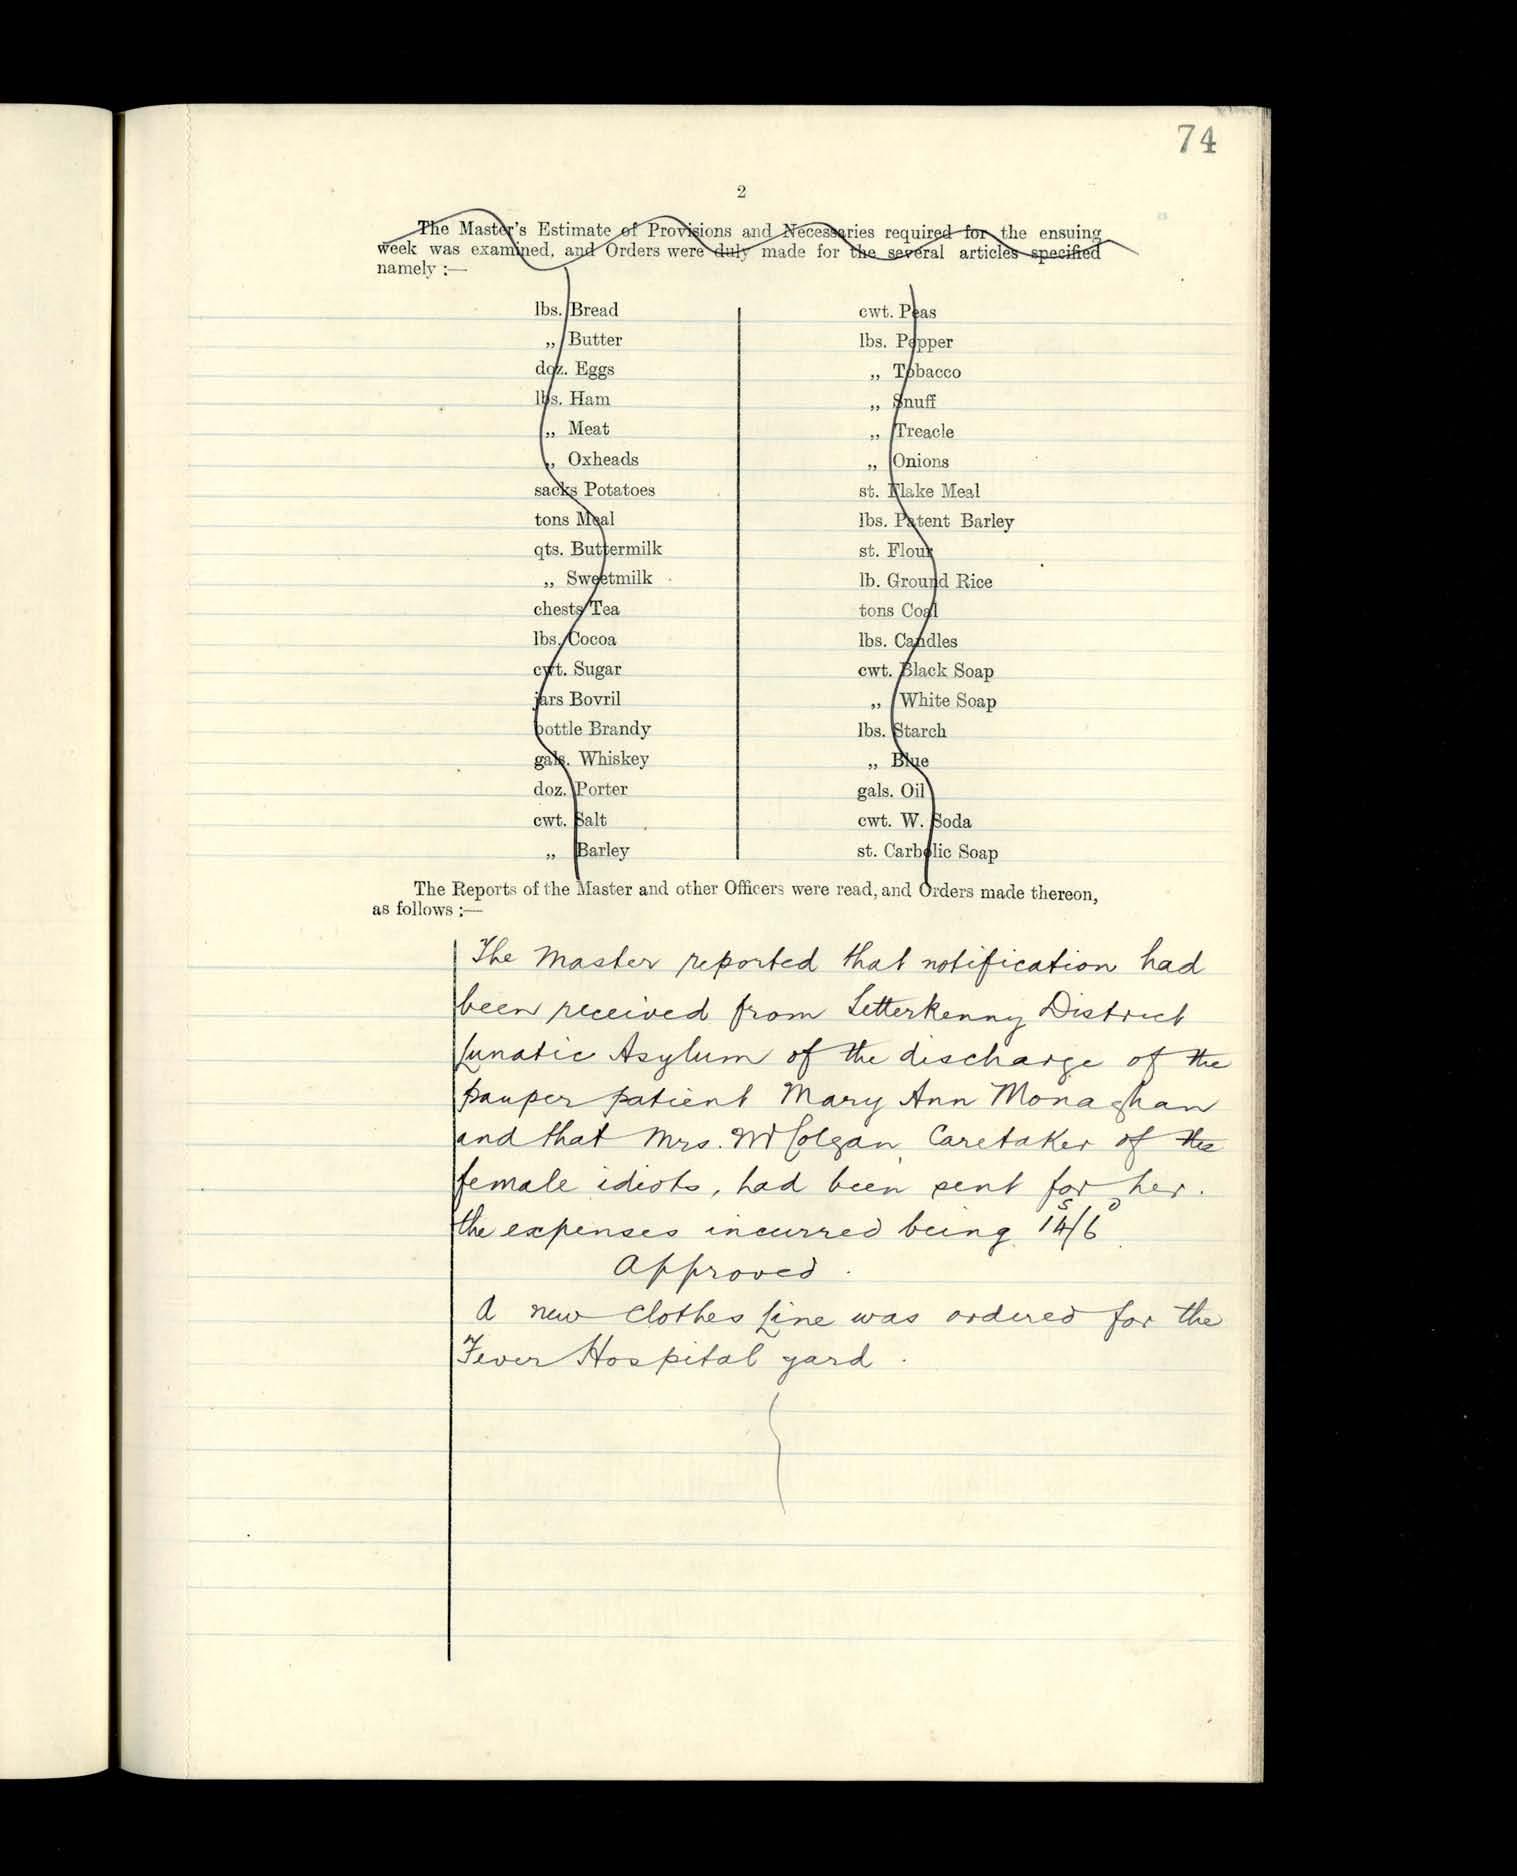 74
2
The Master's Estimate of Provisions and Necessaries required for the ensuing
week was examined, and Orders were duly made for the several articles specified
namely :—
lbs. Bread
„ Butter
doz. Eggs
lbs. Ham
„ Meat
„ Oxheads
sacks Potatoes
tons Meal
qts. Buttermilk
„ Sweetmilk
chests Tea
lbs. Cocoa
cwt. Sugar
jars Bovril
bottle Brandy
gals. Whiskey
doz. Porter
cwt. Salt
„ Barley
cwt. Peas
lbs. Pepper
„ Tobacco
„ Snuff
„ Treacle
„ Onions
st. Flake Meal
lbs. Patent Barley
st. Flour
lb. Ground Rice
tons Coal
lbs. Candles
cwt. Black Soap
„ White Soap
lbs. Starch
„ Blue
gals. Oil
cwt. W. Soda
st. Carbolic Soap
The Reports of the Master and other Officers were read, and Orders made thereon,
as follows :—
The Master reported that notification had
been received from Letterkenny District
Lunatic Asylum of the discharge of the
pauper patient Mary Ann Monaghan
and that Mrs. McColgan, Caretaker of the
female idiots, had been sent for her.
the expenses incurred being 14s/6d
Approved.
A new Clothes Line was ordered for the
Fever Hospital yard.